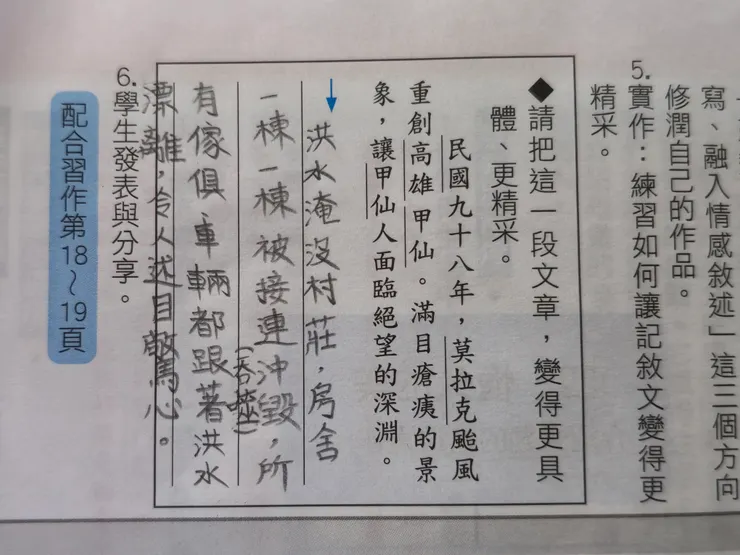 寫、融入情感敘述」這三個方向
修潤自己的作品。
5.實作：練習如何讓記敘文變得更
精采。
◆請把這一段文章，變得更具
體、更精采。
民國九十八年，莫拉克颱風
重創高雄 甲仙。滿目瘡痍的景
象，讓甲仙人面臨絕望的深淵。
洪水淹沒村莊，房舍
一棟一棟被接連沖毀，所
(吞噬)
有傢俱車輛都跟著洪水
漂離，令人述目驚心。
6.學生發表與分享。
配合習作第18～19頁